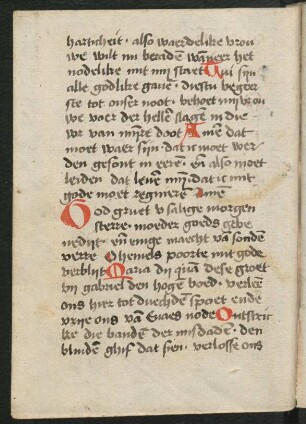 harticheit · also waerdelike vrou
we wilt mi beraden wanneer het
nodelike mit mij staet Qui sijn
alle godlike gaue · duestu begor
ste tot onser noot · behoet mij vrou
we voer der hellen slagen in die
vr van mijnre doot Amen dat
moet waer sijn · dat ic moet wer
den gesont in eere · En also moet
leiden dat leuen mijn · dat ic mit
gode moet regneren Amen
God gruet v salige morgen
sterre · moeder goeds gebe
nedijt · en enige maecht van sonden
verre O hemels poorte mit gode
verblijt Maria di qua dese groet
vn gabriel den hoge bod · verleen
ons hier tot duechden spoet ende
vrije ons van Euaes node Ontstric
ke die banden der misdaden · den
blinden ghif dat sien · verlosse ons